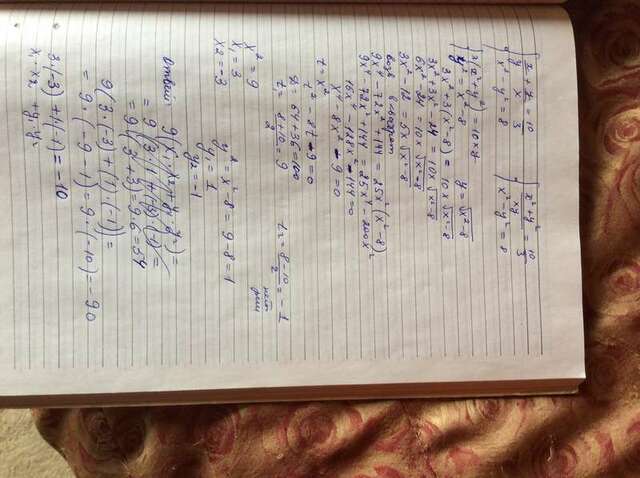 x/y + y/x = 10/3
x² - y² = 8
x² + y² / xy = 10/3
x² - y² = 8
3x² + 3y² = 10xy
3x² + 3(x² - 8) = 10x√x² - 8
y = √x² - 8
6x² - 24 = 10x√x² - 8
3x² - 12 = 5x√x² - 8
9x⁴ - 72x² + 144 = 25x²(x² - 8)
9x⁴ - 72x² + 144 = 25x⁴ - 200x²
16x⁴ - 128x² - 144 = 0
x⁴ - 8x² - 9 = 0
t = x²
t² - 8t - 9 = 0
D = 64 + 36 = 100
t₁ = 8+10/2 = 9
t₂ = 8-10/2 = -1
x² = 9
x₁ = 3
x₂ = -3
y² = x² - 8 = 9 - 8 = 1
y₁ = 1
y₂ = -1
9(x₁·x₂ + y₁·y₂)
= 9(3+3) = 9·6 = 54
9(3·(-3) + (1)·(-1)) =
= 9·(-9 - 1) = 9·(-10) = -90
3·(-3) + 1·(-1) = -10
x₁·x₂ + y₁y₂